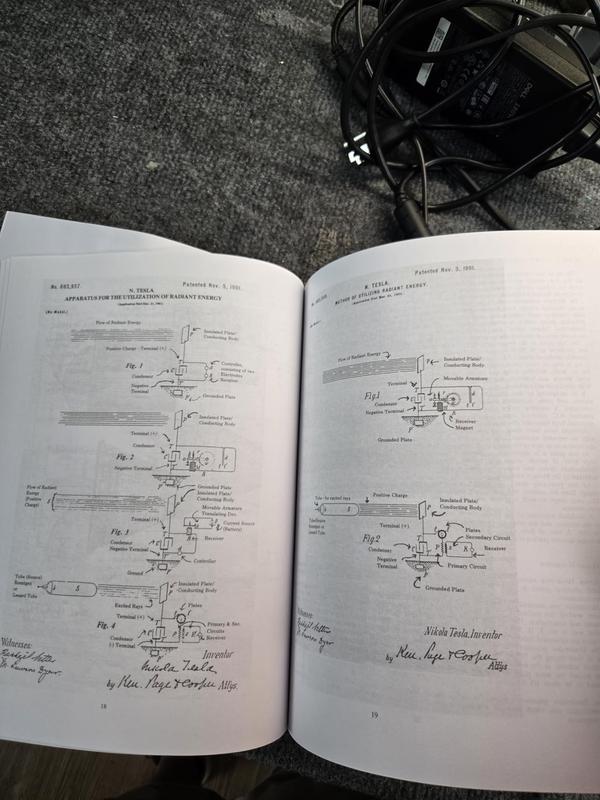 No. 685,957.
Patented Nov. 5, 1901.
N. TESLA
APPARATUS FOR THE UTILIZATION OF RADIANT ENERGY
(Application filed Mar. 21, 1901.)
(No Model.)
Flow of Radiant Energy
Insulated Plate/
Conducting Body
P
Positive Charge - Terminal (+)
T
Fig. 1
Controller,
consisting of two
Electrodes
Condensor
C
Receiver
Negative
Terminal
T'
P'
Grounded Plate
Insulated Plate/
Conducting Body
P
Terminal (+)
T
Condensor
Fig. 2
Negative Terminal
R
Grounded Plate
Flow of Radiant
Energy
(Positive
Charge)
Insulated Plate/
Conducting Body
P
Movable Armature
Translating Dev.
Terminal (+)
Current Source
(Battery)
Fig. 3
Receiver
Condensor
Negative Terminal
Controller
Ground
Tube (Source)
Roentgen
or
Lenard Tube
S
Insulated Plate/
Conducting Body
P
Excited Rays
Plates
Terminal (+)
Fig. 4
Primary & Sec.
Circuits
Receiver
Condensor
(-) Terminal
Witnesses:
Inventor
Nikola Tesla
by Kerr, Page & Cooper Att'ys.
18
Patented Nov. 5, 1901.
N. TESLA.
METHOD OF UTILIZING RADIANT ENERGY.
Flow of Radiant Energy
Insulated Plate/
Conducting Body
P
Terminal
Movable Armature
Fig.1
Condensor
Negative Terminal
Receiver
Magnet
Grounded Plate
Positive Charge
Insulated Plate/
Conducting Body
P
Terminal (+)
Plates
Secondary Circuit
Fig2
Receiver
Condensor
Negative
Terminal
Primary Circuit
Grounded Plate
Witnesses:
Nikola Tesla, Inventor
by Kerr, Page & Cooper Att'ys
19
DELL